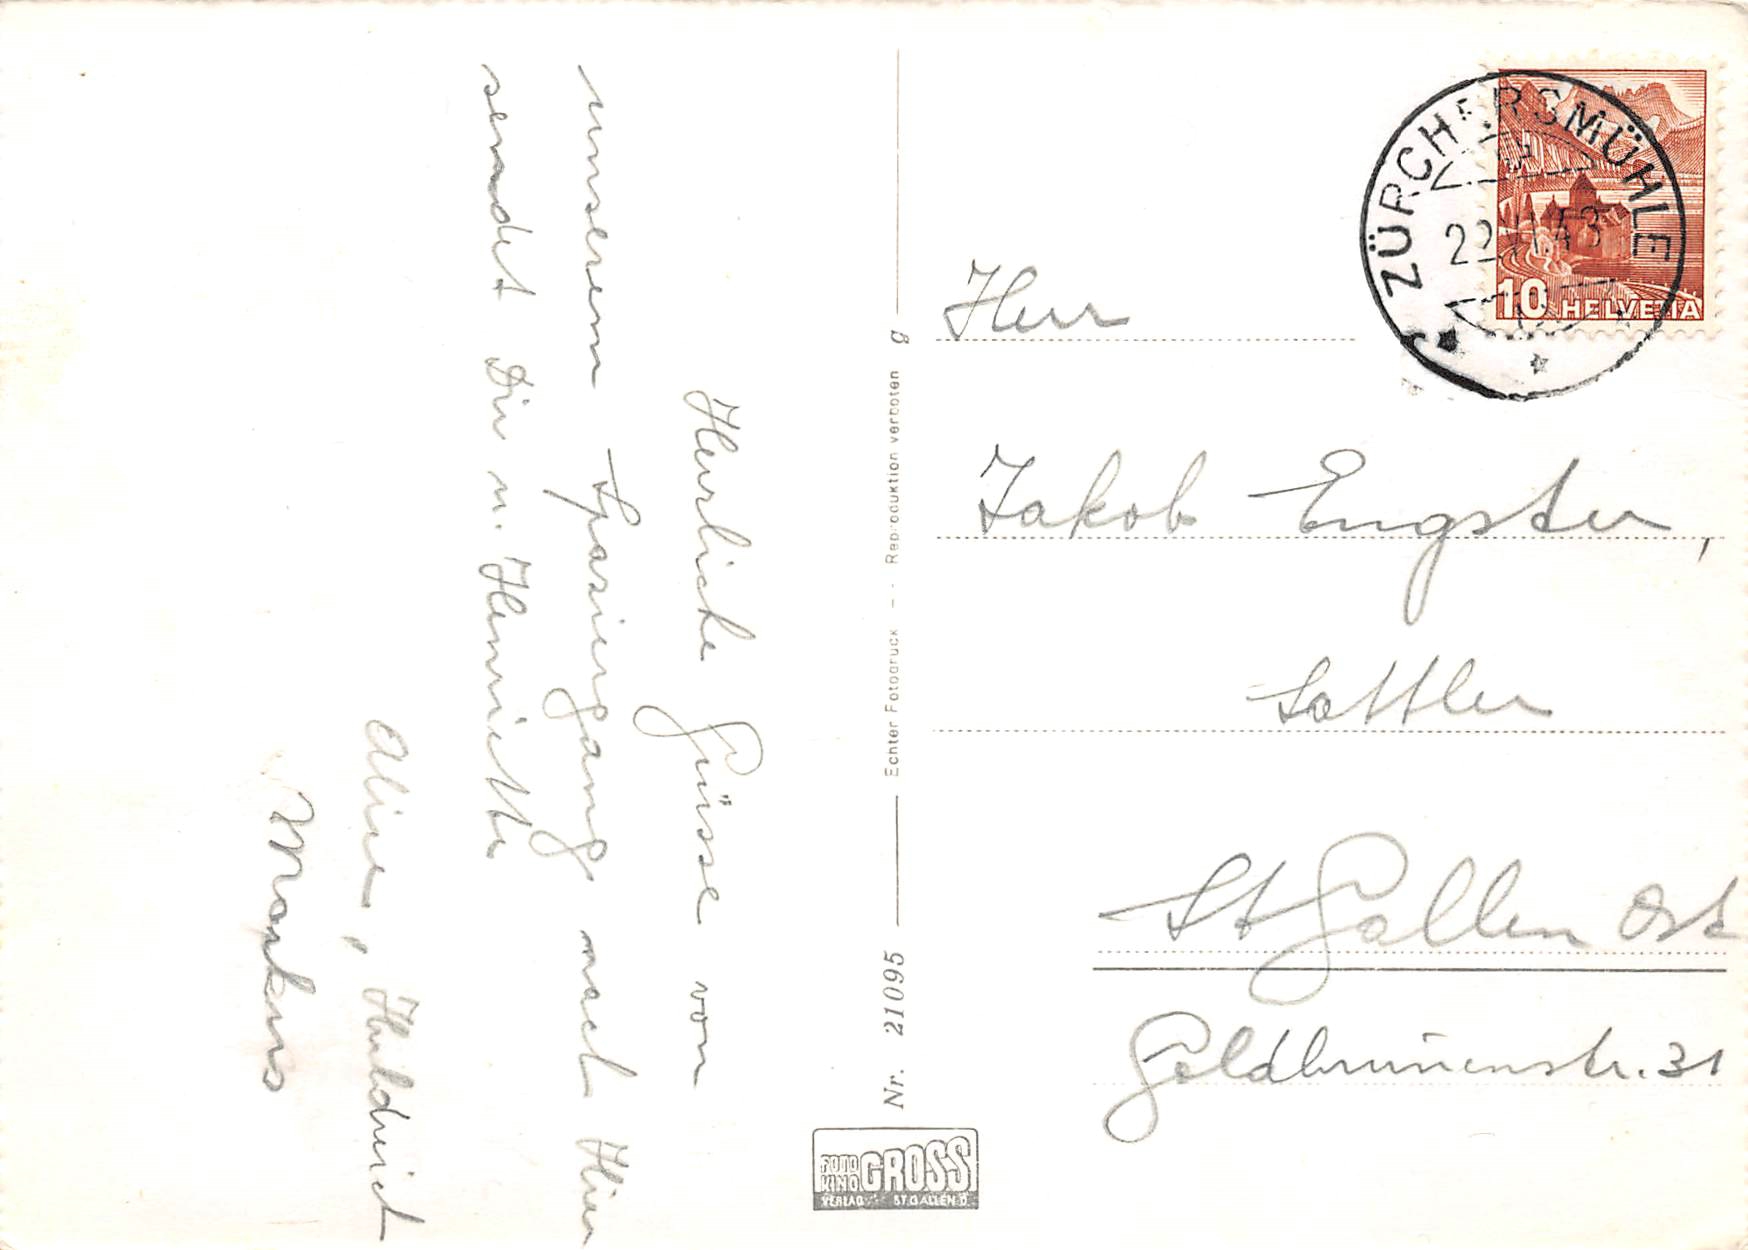 Herrliche Grüsse von
unserem Spaziergang nach
sendet Dir u. Henriette
Aline, Huldreich
Markus
Nr. 21095
Echter Fotodruck -- Reproduktion verboten g
FOTO KINO GROSS
VERLAG ST. GALLEN O
ZÜRCHERSMÜHLE
22.VI.43
10 HELVETIA
Herr
Jakob Engster,
Sattler
St Gallen Ost
Goldbrunnenstr. 31